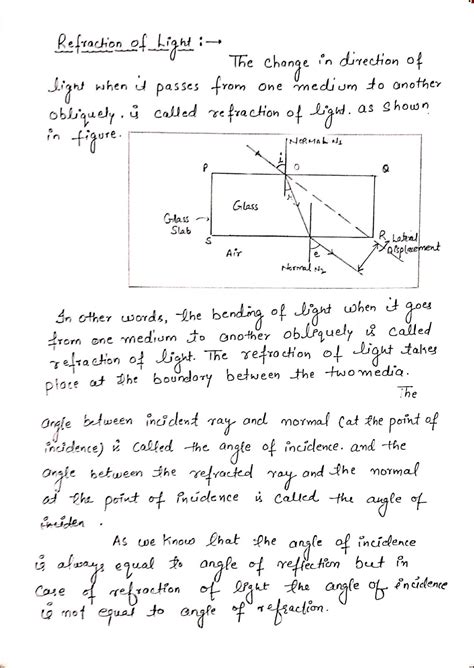 Refraction of Light :→
The change in direction of
light when it passes from one medium to another
obliquely. is called refraction of light. as shown
in figure.
Normal N1
i
P
O
Q
r
Glass
Glass
Slab
S
R
Lateral
Displacement
Air
e
Normal N2
In other words, the bending of light when it goes
from one medium to another obliquely is called
refraction of light. The refraction of light takes
place at the boundary between the two media.
The
angle between incident ray and normal (at the point of
incidence) is called the angle of incidence. and the
angle between the refracted ray and the normal
at the point of incidence is called the angle of
inciden .
As we know that the angle of incidence
is always equal to angle of reflection but in
case of refraction of light the angle of incidence
is not equal to angle of refraction.